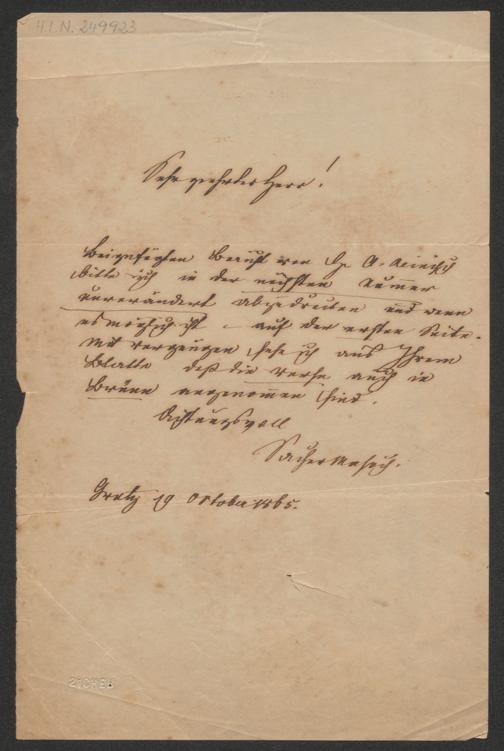 H.I.N. 249923
Sehr geehrter Herr!
Beigefügten Bericht von
bitte ich in der nächsten Numer
unverändert abzudrucken und wenn
es möglich ist – auf der ersten Seite.
Mit Vergnügen sehe ich aus Ihrem
Blatte daß die Verse auch in
Brünn angenommen sind.
Achtungsvoll
Sacher Masoch.
Gratz 19 October 1865.